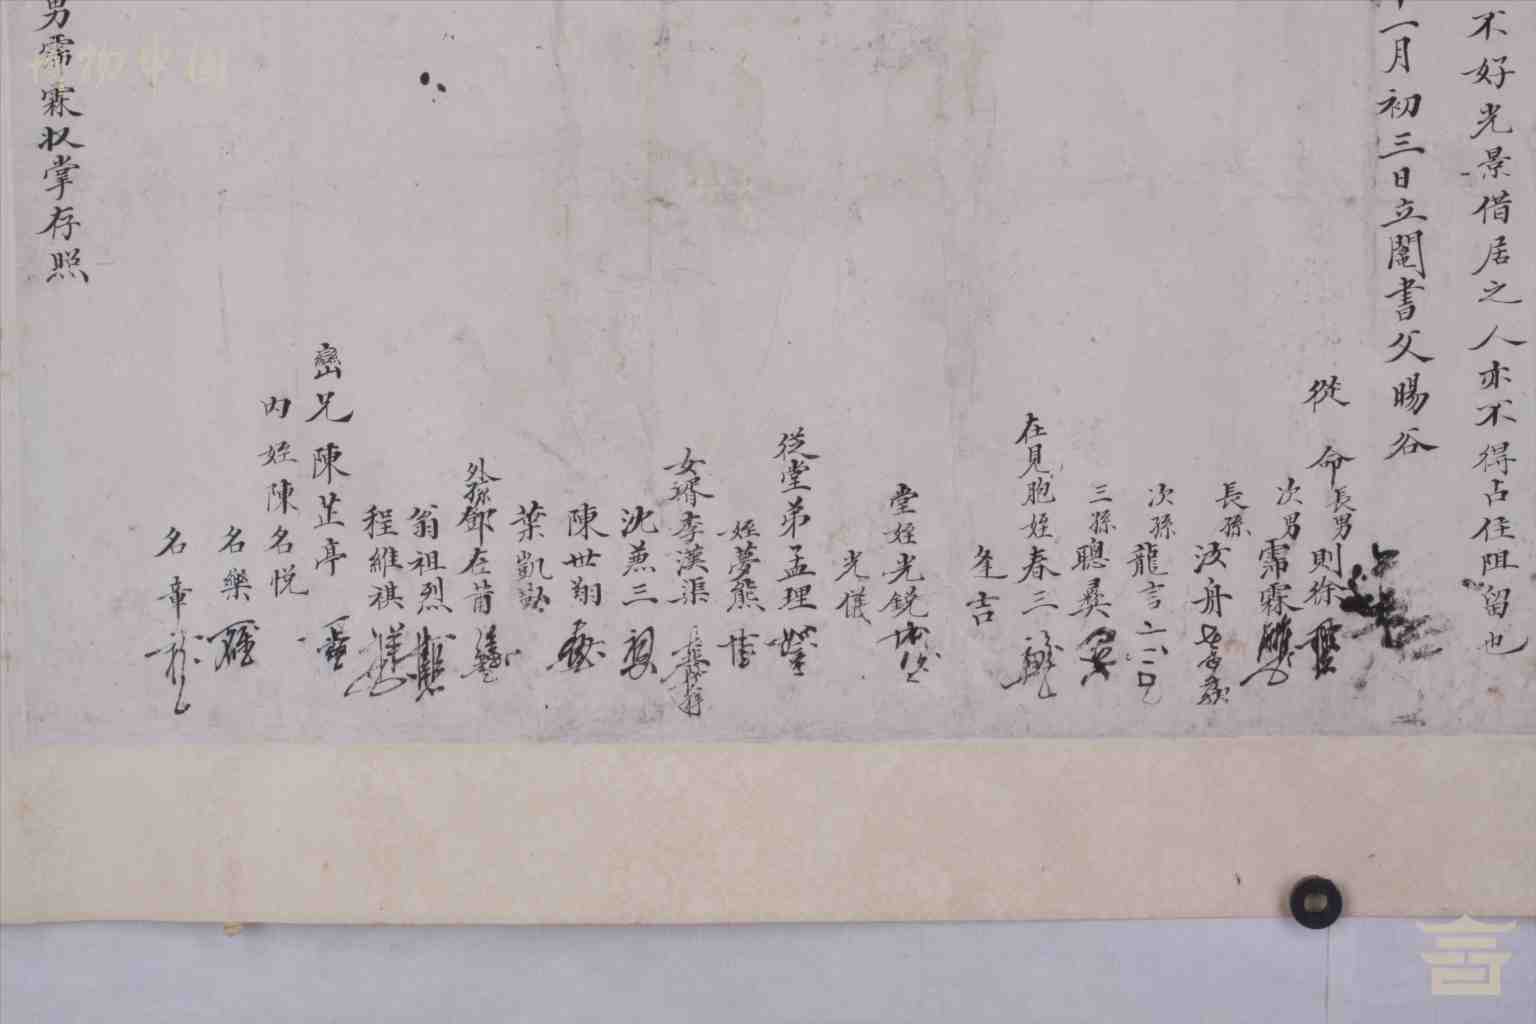 不好光景借居之人亦不得占住阻留也
十一月初三日立鬮書父暘谷
從命長男則徐
次男霈霖
長孫汝舟
次孫龍言
三孫聰彝
在見胞姪春三
逢吉
堂姪光銳
光儀
從堂弟孟理
姪夢熊
女壻李漢渠
沈燕三
陳世翔
葉凱
外孫鄧在莆
翁祖烈
程維祺
巒兄陳芷亭
內姪陳名悅
名樂
名章
男霈霖收掌存照
博物中国